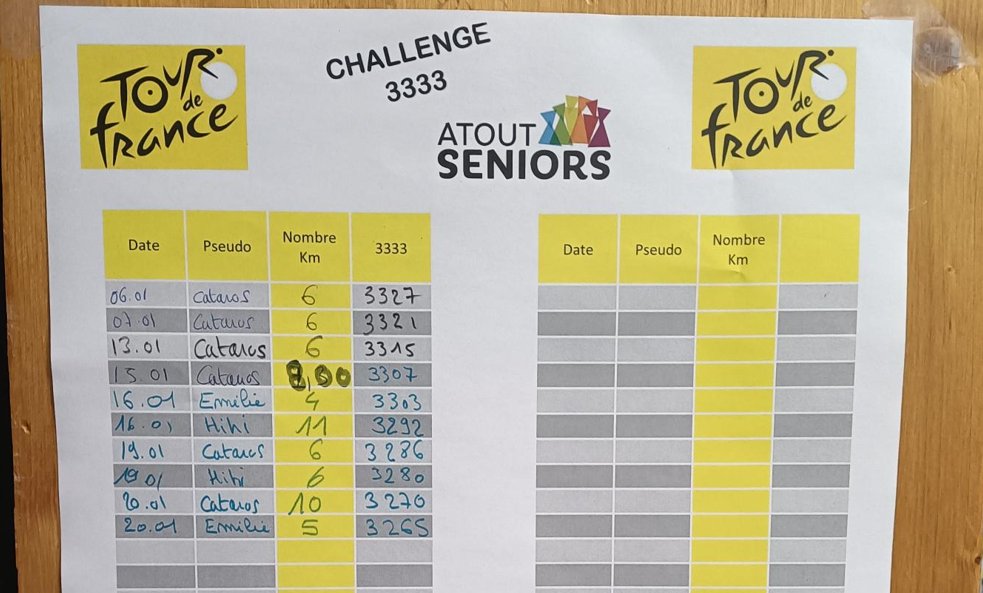 TOUR de france
CHALLENGE
3333
ATOUT
SENIORS
TOUR de france
Date Pseudo Nombre Km 3333
06.01 Cataros 6 3327
07.01 Cataros 6 3321
13.01 Cataros 6 3315
15.01 Cataros 8,30 3307
16.01 Emilie 4 3303
16.01 Hihi 11 3292
19.01 Cataros 6 3286
19.01 Hihi 6 3280
20.01 Cataros 10 3270
20.01 Emilie 5 3265
Date Pseudo Nombre Km